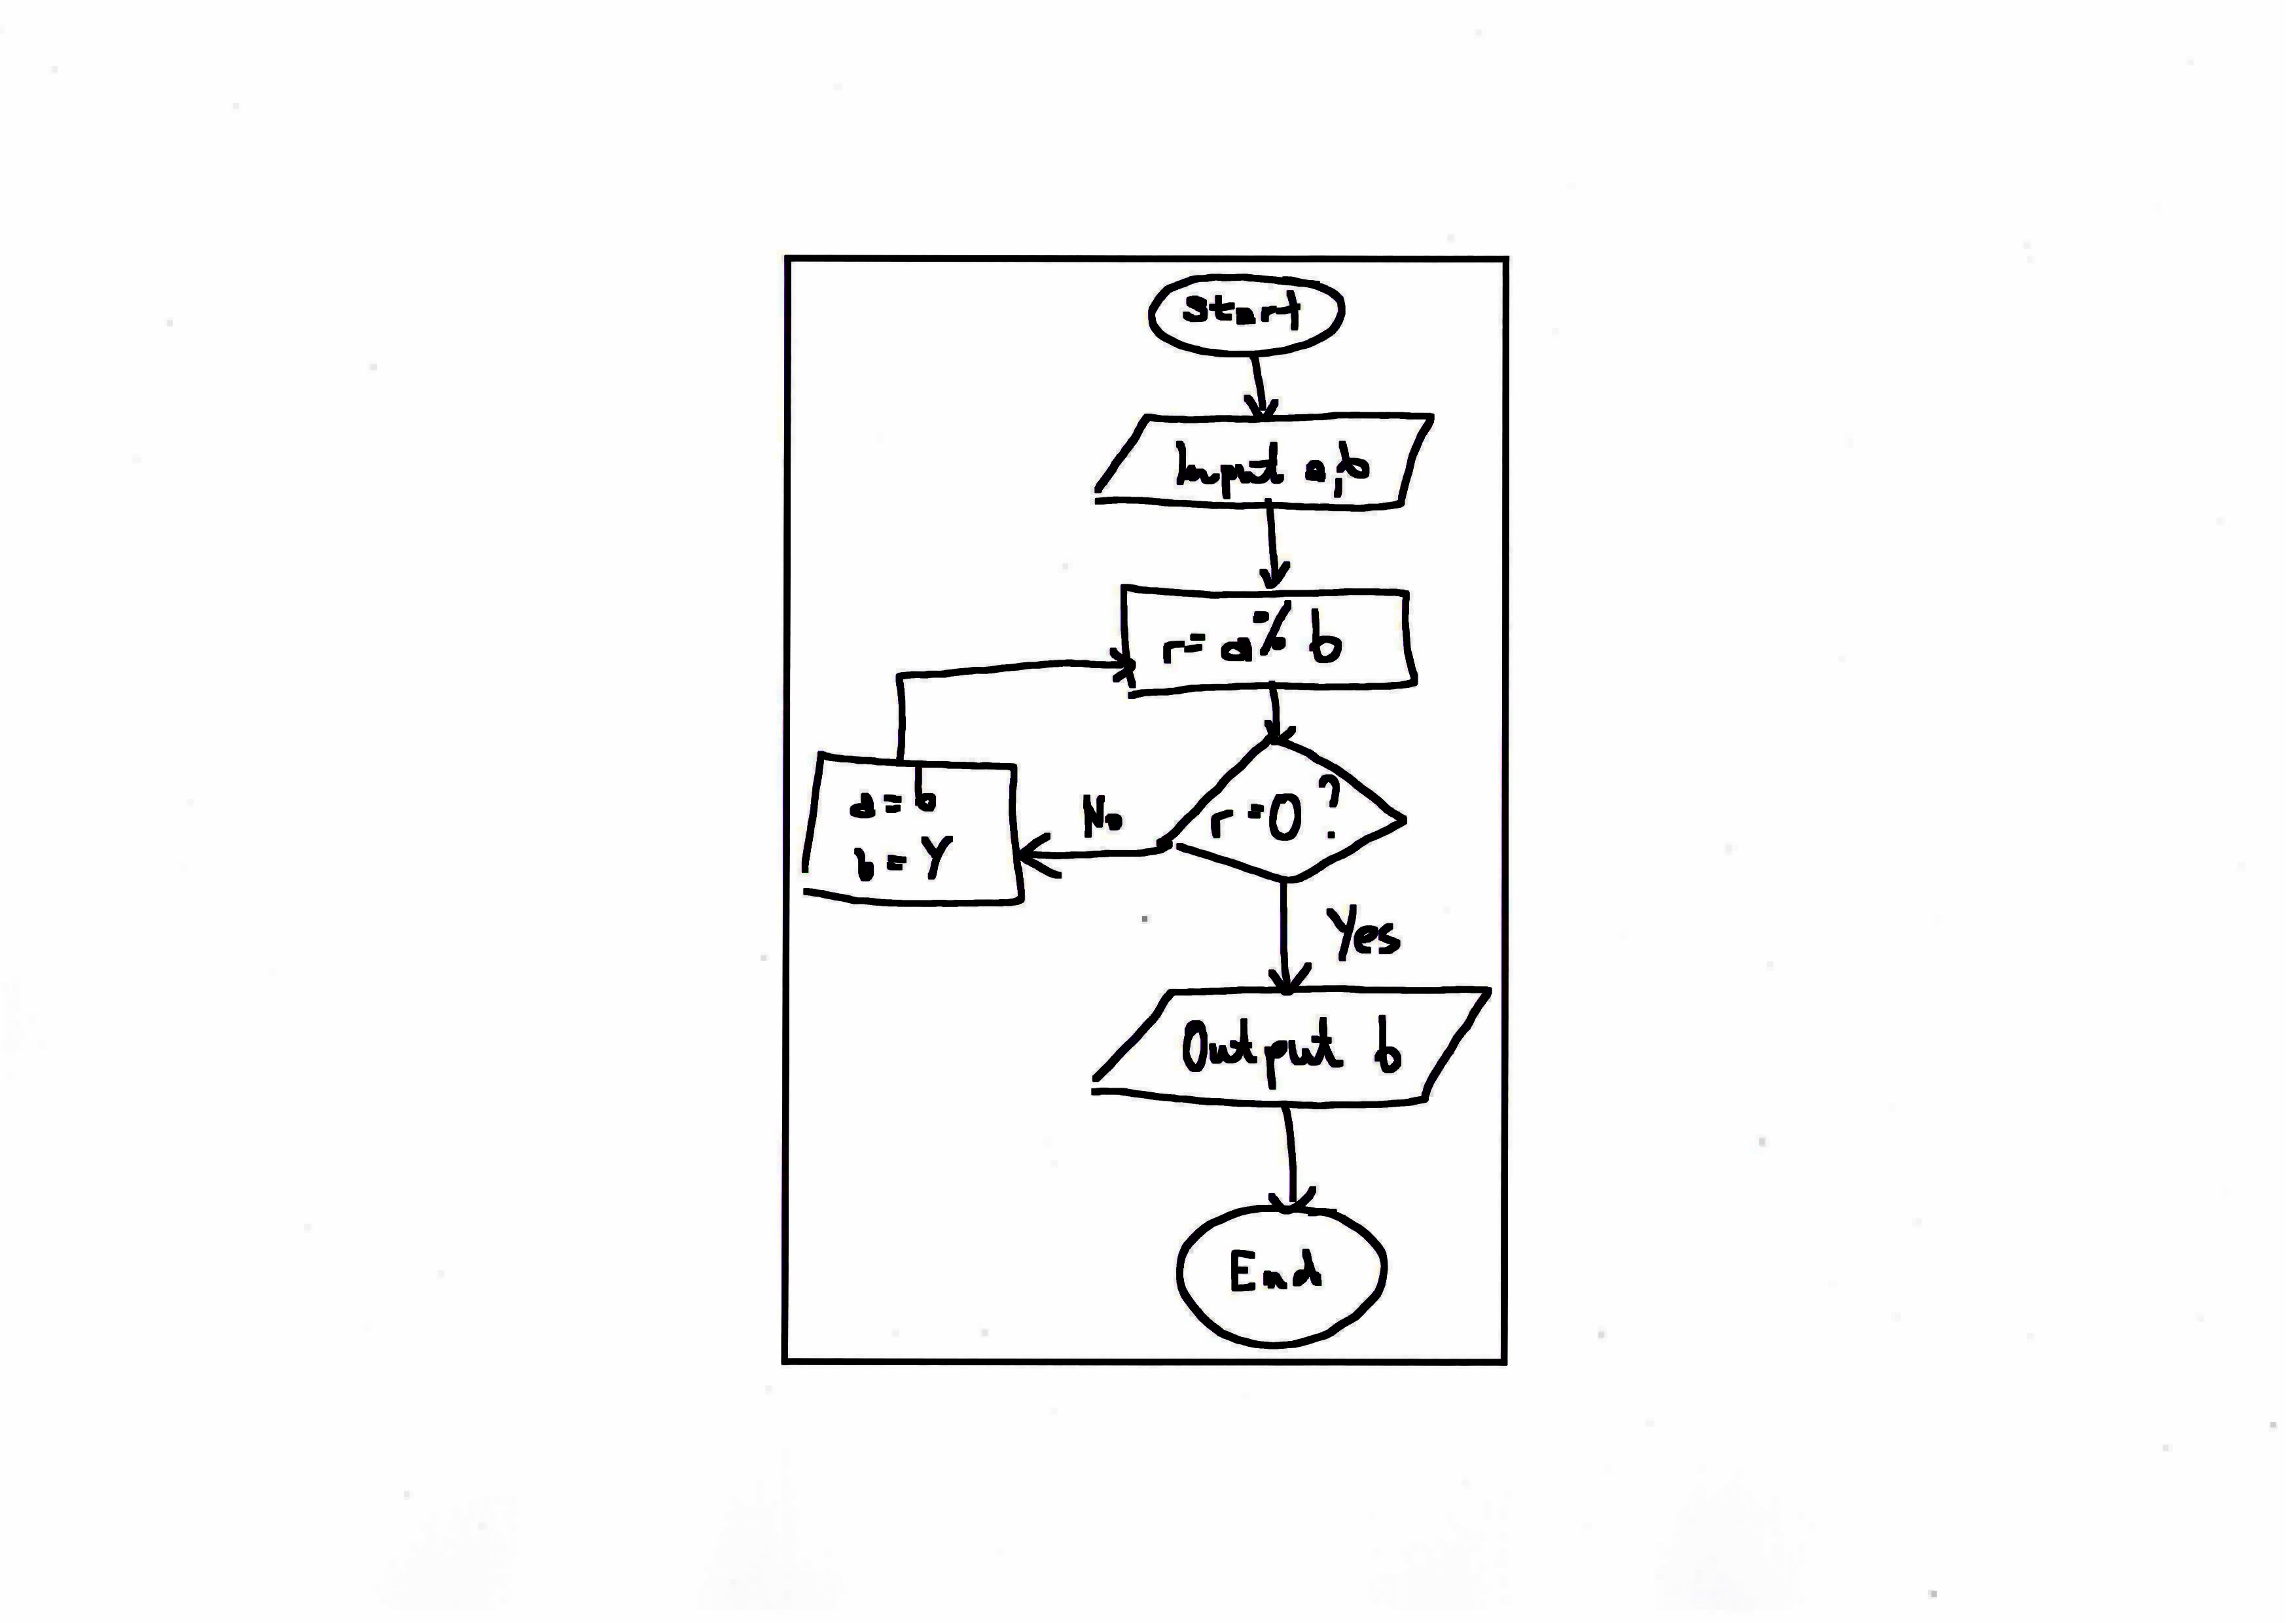 Start
Input a,b
r=a% b
r=0?
No
a=b
b=Y
Yes
Output b
End